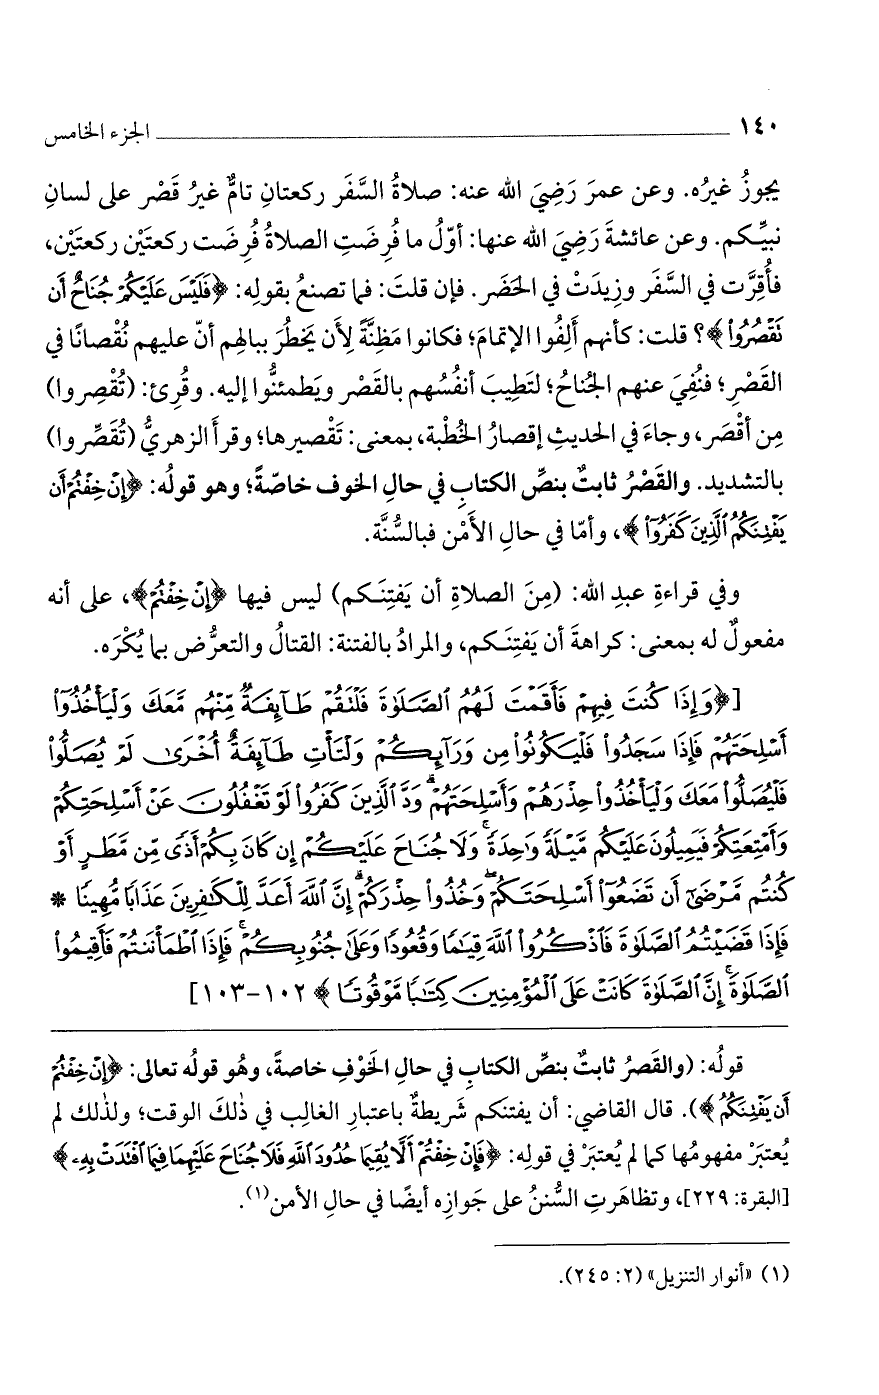 ١٤٠ ــــــــــــــــــــ الجزء الخامس
يجوزُ غيرُه. وعن عمرَ رَضِيَ الله عنه: صلاةُ السَّفَر ركعتانِ تامٌّ غيرُ قَصْر على لسانِ
نبيِّكم. وعن عائشةَ رَضِيَ الله عنها: أوّلُ ما فُرِضَتِ الصلاةُ فُرِضَت ركعتَيْن ركعتَيْن،
فأُقِرَّت في السَّفَر وزِيدَتْ في الحَضَر. فإن قلتَ: فما تصنعُ بقولِه: ﴿فَلَيْسَ عَلَيْكُمْ جُنَاحٌ أَن
نَقْصُرُوا۟﴾؟ قلت: كأنهم أَلِفُوا الإتمامَ؛ فكانوا مَظِنَّةً لِأَن يَخطُرَ ببالِهم أنّ عليهم نُقْصانًا في
القَصْرِ؛ فنُفِيَ عنهم الجُناحُ؛ لتَطِيبَ أنفُسُهم بالقَصْر ويَطمئنُّوا إليه. وقُرِئ: (تُقْصِروا)
مِن أقْصَر، وجاءَ في الحديثِ إقصارُ الخُطْبة، بمعنى: تَقْصيرها؛ وقرأ الزهريُّ (تُقَصِّروا)
بالتشديد. والقَصْرُ ثابتٌ بنصِّ الكتابِ في حالِ الخوف خاصّةً؛ وهو قولُه: ﴿إِنْ خِفْتُمْ أَن
يَفْتِنَكُمُ ٱلَّذِينَ كَفَرُوٓا۟﴾، وأمّا في حالِ الأَمْن فبالسُّنَّة.
وفي قراءةِ عبدِ الله: (مِنَ الصلاةِ أن يَفتِنَكم) ليس فيها ﴿إِنْ خِفْتُمْ﴾، على أنه
مفعولٌ له بمعنى: كراهةَ أن يَفتِنَكم، والمرادُ بالفتنة: القتالُ والتعرُّض بما يُكْرَه.
[﴿وَإِذَا كُنتَ فِيهِمْ فَأَقَمْتَ لَهُمُ ٱلصَّلَوٰةَ فَلْتَقُمْ طَآئِفَةٌ مِّنْهُم مَّعَكَ وَلْيَأْخُذُوٓا۟
أَسْلِحَتَهُمْ فَإِذَا سَجَدُوا۟ فَلْيَكُونُوا۟ مِن وَرَآئِكُمْ وَلْتَأْتِ طَآئِفَةٌ أُخْرَىٰ لَمْ يُصَلُّوا۟
فَلْيُصَلُّوا۟ مَعَكَ وَلْيَأْخُذُوا۟ حِذْرَهُمْ وَأَسْلِحَتَهُمْ ۗ وَدَّ ٱلَّذِينَ كَفَرُوا۟ لَوْ تَغْفُلُونَ عَنْ أَسْلِحَتِكُمْ
وَأَمْتِعَتِكُمْ فَيَمِيلُونَ عَلَيْكُم مَّيْلَةً وَٰحِدَةً ۚ وَلَا جُنَاحَ عَلَيْكُمْ إِن كَانَ بِكُمْ أَذًى مِّن مَّطَرٍ أَوْ
كُنتُم مَّرْضَىٰٓ أَن تَضَعُوٓا۟ أَسْلِحَتَكُمْ ۖ وَخُذُوا۟ حِذْرَكُمْ ۗ إِنَّ ٱللَّهَ أَعَدَّ لِلْكَٰفِرِينَ عَذَابًا مُّهِينًا *
فَإِذَا قَضَيْتُمُ ٱلصَّلَوٰةَ فَٱذْكُرُوا۟ ٱللَّهَ قِيَٰمًا وَقُعُودًا وَعَلَىٰ جُنُوبِكُمْ ۚ فَإِذَا ٱطْمَأْنَنتُمْ فَأَقِيمُوا۟
ٱلصَّلَوٰةَ ۚ إِنَّ ٱلصَّلَوٰةَ كَانَتْ عَلَى ٱلْمُؤْمِنِينَ كِتَٰبًا مَّوْقُوتًا﴾ ١٠٢-١٠٣]
قولُه: (والقَصرُ ثابتٌ بنصِّ الكتابِ في حالِ الخَوْفِ خاصةً، وهُو قولُه تعالى: ﴿إِنْ خِفْتُمْ
أَن يَفْتِنَكُمُ﴾). قال القاضي: أن يفتنكم شَرِيطةٌ باعتبارِ الغالِب في ذٰلكَ الوقت؛ ولذٰلك لم
يُعتبَرْ مفهومُها كما لم يُعتبَرْ في قولِه: ﴿فَإِنْ خِفْتُمْ أَلَّا يُقِيمَا حُدُودَ ٱللَّهِ فَلَا جُنَاحَ عَلَيْهِمَا فِيمَا ٱفْتَدَتْ بِهِۦ﴾
[البقرة: ٢٢٩]، وتظاهَرتِ السُّننُ على جَوازِه أيضًا في حالِ الأمن(١).
(١) «أنوار التنزيل» (٢: ٢٤٥).